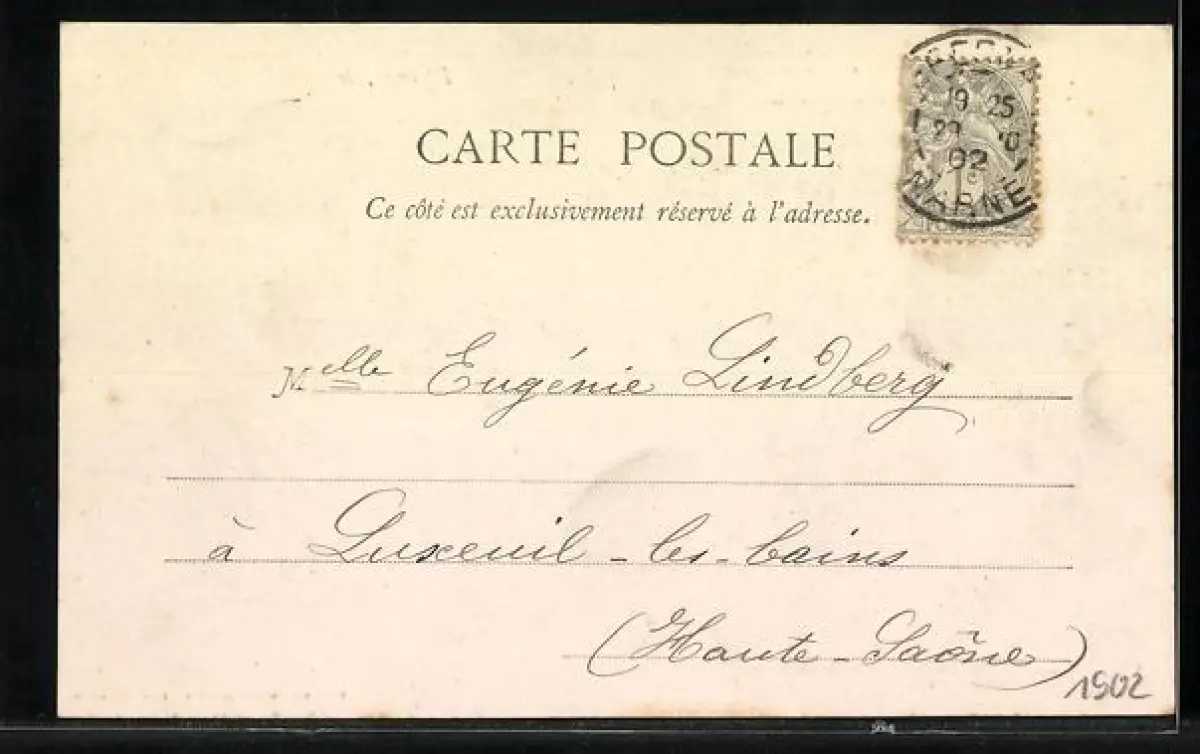 CARTE POSTALE
Ce côté est exclusivement réservé à l'adresse.
19 25
02
1c
MARNE
Melle Eugénie Lindberg
à Luxeuil-les-bains
(Haute-Saône)
1902